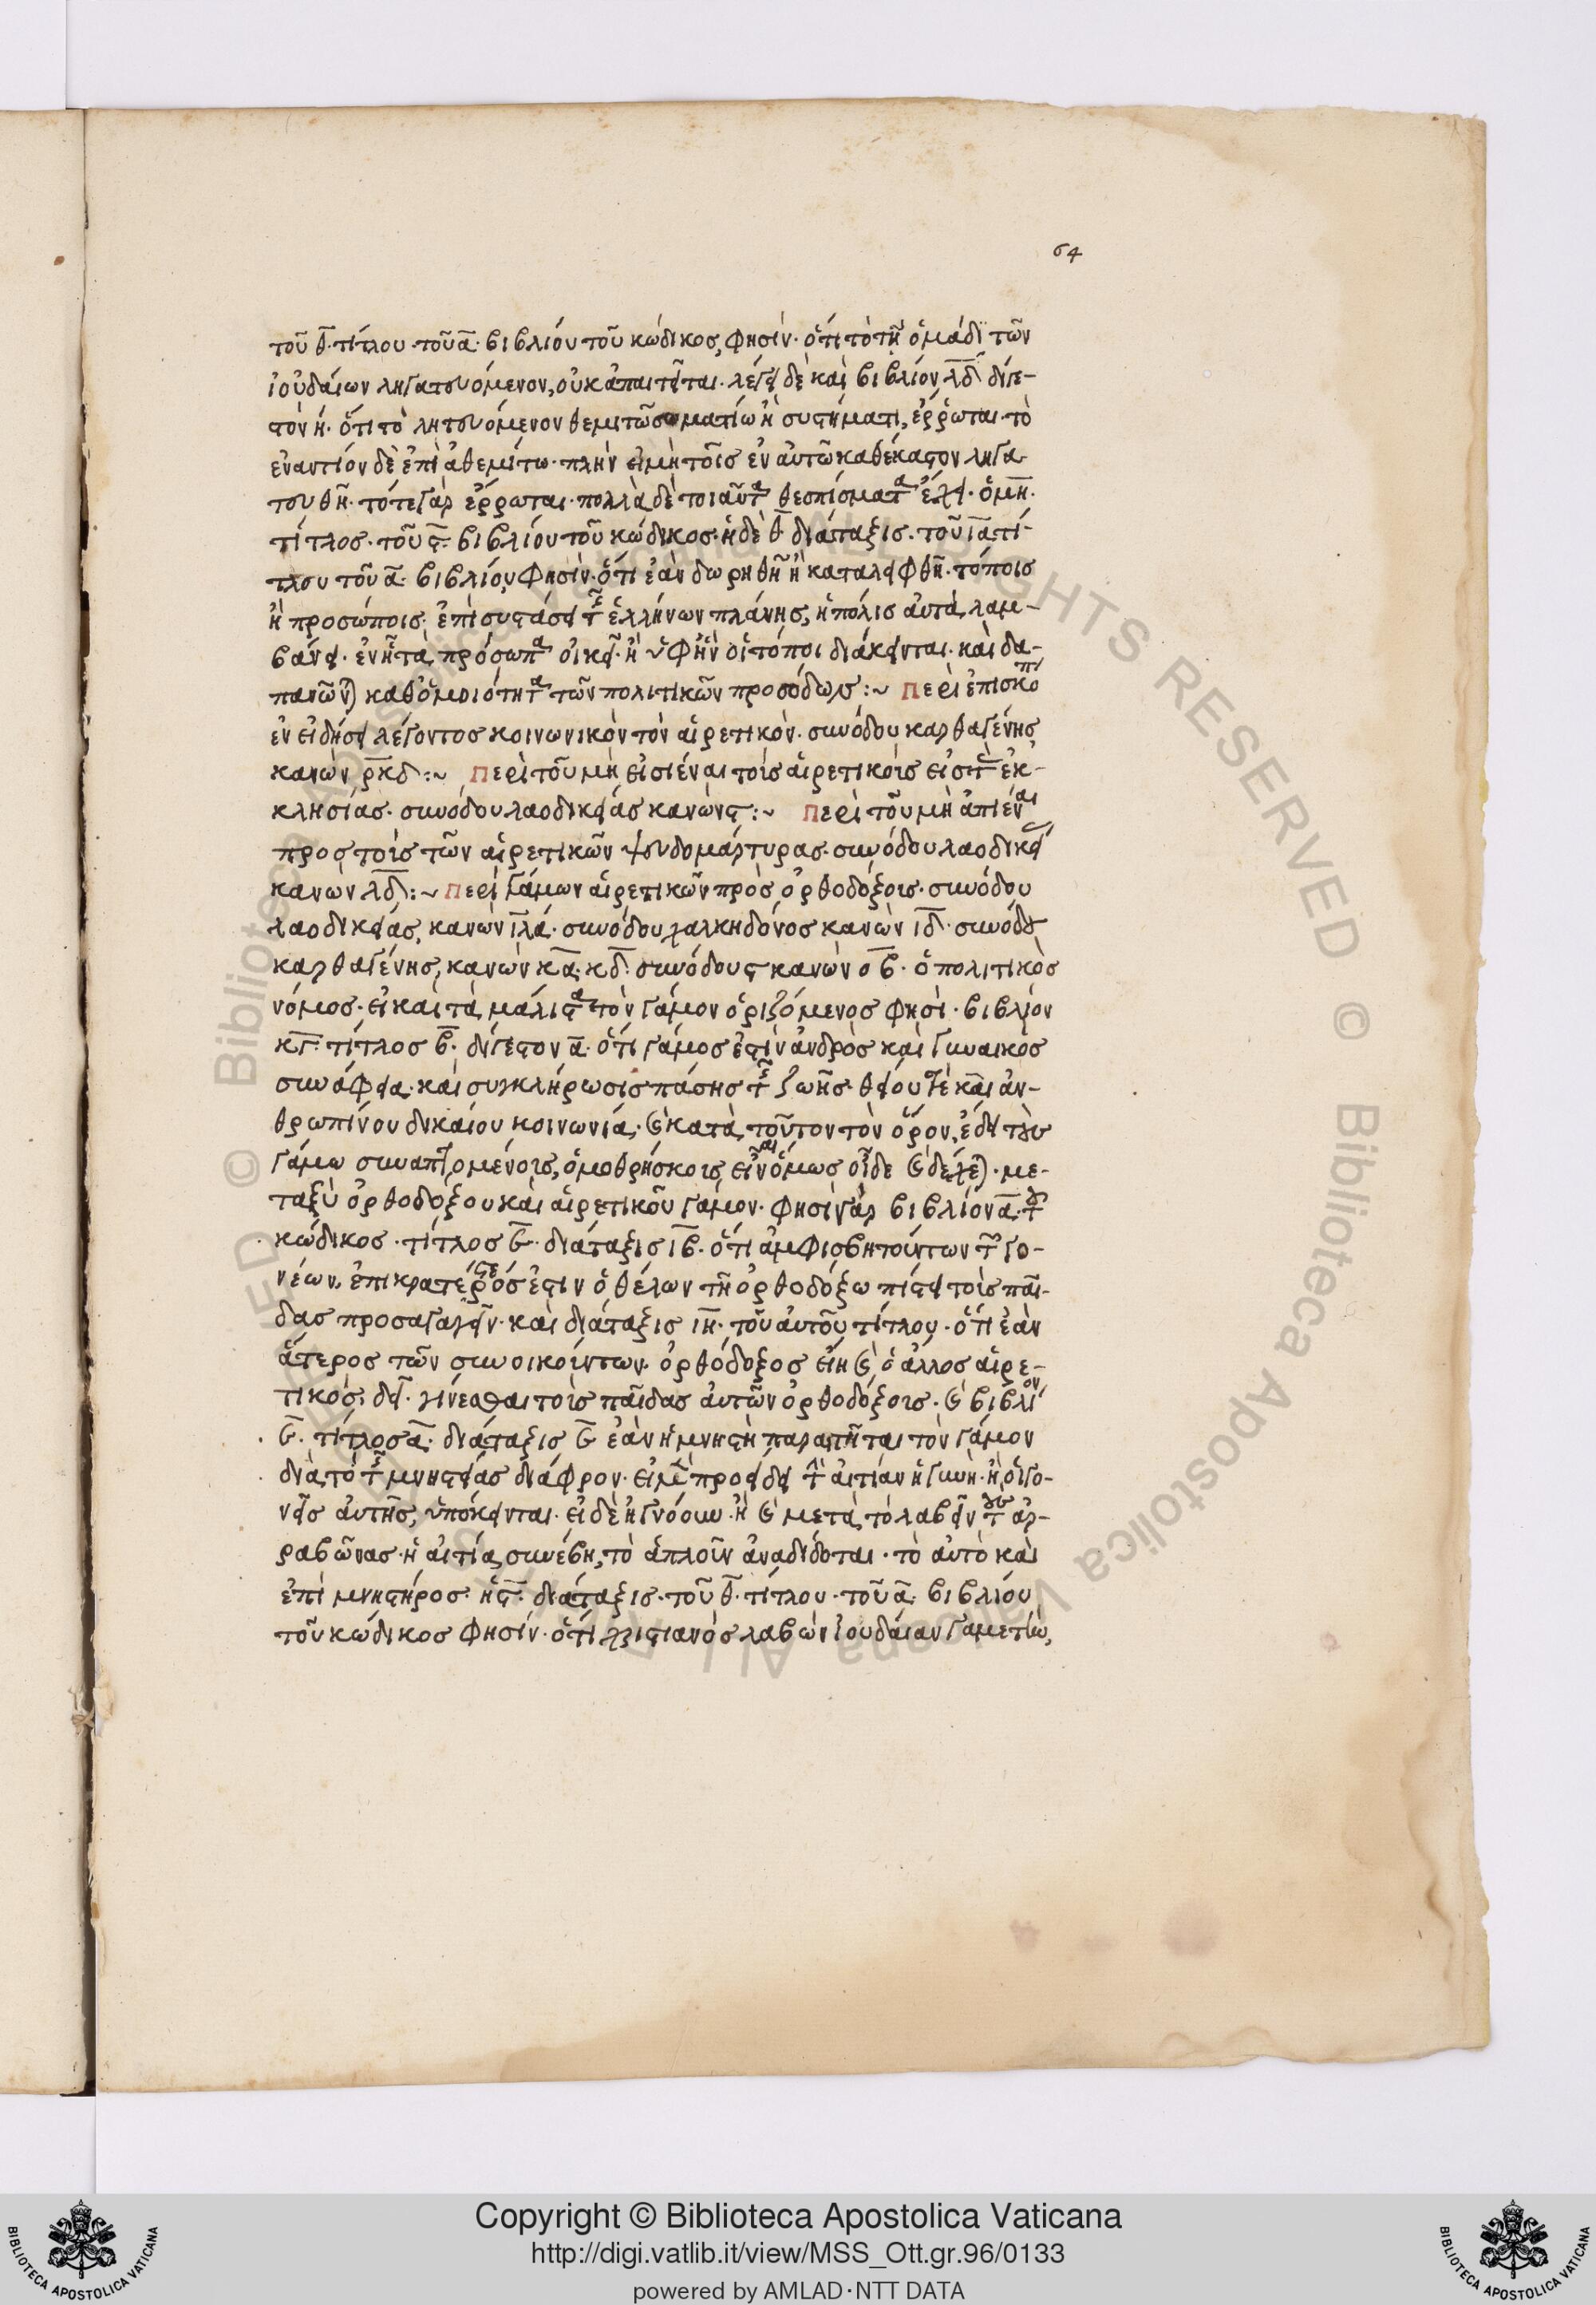 64
τοῦ θ̅. τίτλου. τοῦ α̅. βιβλίου τοῦ κώδικος, φησίν. ὅτι τὸ τῇ ὁμάδι τῶν
ἰουδαίων ληγατευόμενον, οὐκ ἀπαιτεῖται. λέγει δὲ καὶ βιβλίον λ̅δ̅ διγε-
στον η. ὅτι τὸ ληγατευόμενον θεμιτῶ σωματίω ἢ συστήματι, ἔρρωται. τὸ
ἐναντίον δὲ ἐπὶ ἀθεμίτω. πλὴν εἰμὴ τοῖς ἐν αὐτῶ καθέκαστον ληγα-
τευθῆ. τότε γὰρ ἔρρωται. πολλὰ δὲ τοιαῦτα θεσπίσματα ἔχει. ὁ μ̅η̅.
τίτλος. τοῦ ς̅. βιβλίου τοῦ κώδικος. ἡ δὲ θ̅ διάταξις. τοῦ ι̅α̅ τί-
τλου τοῦ α̅. βιβλίου, φησίν. ὅτι ἐὰν δωρηθῆ ἢ καταλειφθῆ. τόποις
ἢ προσώποις. ἐπὶ συστάσει τῆς ἑλλήνων πλάνης, ἡ πόλις αὐτὰ λαμ-
βάνει. ἐν ἧ τὰ πρόσωπα οἰκεῖ. ἢ ὑφ' ἣν οἱ τόποι διάκεινται. καὶ δα-
πανῶνται καθ' ὁμοιότητα τῶν πολιτικῶν προσόδων :~ Περὶ ἐπισκόπου
ἐν εἰδήσει λέγοντος κοινωνικὸν τὸν αἱρετικόν. συνόδου καρθαγένης
κανὼν ρ̅κ̅δ̅ :~ Περὶ τοῦ μὴ εἰσιέναι τοὺς αἱρετικοὺς εἰς τὰς ἐκ-
κλησίας. συνόδου λαοδικείας κανὼν ς :~ Περὶ τοῦ μὴ ἀπιέναι
προς τοὺς τῶν αἱρετικῶν ψευδομάρτυρας. συνόδου λαοδικεί
κανων λ̅δ̅ :~ Περὶ γάμων αἱρετικῶν πρὸς ὀρθοδόξους. συνόδου
λαοδικείας, κανὼν ι̅ λ̅α̅. συνόδου χαλκηδόνος κανὼν ι̅δ̅. συνόδου
καρθαγένης, κανὼν κ̅α̅. κ̅δ̅. συνόδου ς κανὼν ο̅β̅. ὁ πολιτικὸς
νόμος. εἰ καὶ τὰ μάλιστα τὸν γάμον ὁριζόμενος φησὶ. βιβλίον
κ̅γ̅. τίτλος β̅. διγεστον α̅. ὅτι γάμος ἐστὶν ἀνδρὸς καὶ γυναικὸς
συνάφεια. καὶ συγκλήρωσις πάσης τῆς ζωῆς. θείου τὲ καὶ ἀν-
θρωπίνου δικαίου κοινωνία. καὶ κατὰ τοῦτον τὸν ὅρον, ἔδει τοὺς
γάμω συναπτομένους, ὁμοθρήσκους εἶναι ὅμως οἶδε καὶ δέχεται. με-
ταξὺ ὀρθοδόξου καὶ αἱρετικοῦ γάμον. φησὶ γὰρ βιβλίον α̅. τοῦ
κώδικος. τίτλος ε̅. διάταξις ι̅β̅. ὅτι ἀμφισβητούντων τῶν γο-
νέων, ἐπικρατέστερός ἐστιν ὁ θέλων τῆ ὀρθοδόξω πίστει τοὺς παῖ-
δας προσαγαγεῖν. καὶ διάταξις ι̅η̅. τοῦ αὐτοῦ τίτλου. ὅτι ἐὰν
ἅτερος τῶν συνοικούντων. ὀρθόδοξος εἴη καὶ ὁ ἄλλος αἱρε-
τικός, δεῖ. γίνεσθαι τοὺς παῖδας αὐτῶν ὀρθοδόξους. καὶ βιβλίον
ε̅. τίτλος α̅. διάταξις ε̅ ἐὰν ἡ μνηστὴ παραιτῆται τὸν γάμον
διὰ τὸ τῆς μνηστείας διάφρον. εἰ μὲν προήδει τὴν αἰτίαν ἡ γυνὴ. ἢ οἱ γο-
νεῖς αὐτῆς, ὑπόκεινται. εἰ δὲ ἠγνόουν. ἢ καὶ μετὰ τὸ λαβεῖν τοὺς ἀρ-
ραβῶνας. ἡ αἰτία συνέβη, τὸ ἁπλοῦν ἀναδίδοται. τὸ αὐτὸ καὶ
ἐπὶ μνηστῆρος. ἡ ς̅. διάταξις. τοῦ θ̅. τίτλου. τοῦ α̅. βιβλίου
τοῦ κώδικος φησίν. ὅτι χριστιανὸς λαβὼν ἰουδαίαν γαμετὴν,
Copyright © Biblioteca Apostolica Vaticana
http://digi.vatlib.it/view/MSS_Ott.gr.96/0133
powered by AMLAD·NTT DATA
BIBLIOTECA APOSTOLICA VATICANA
BIBLIOTECA APOSTOLICA VATICANA